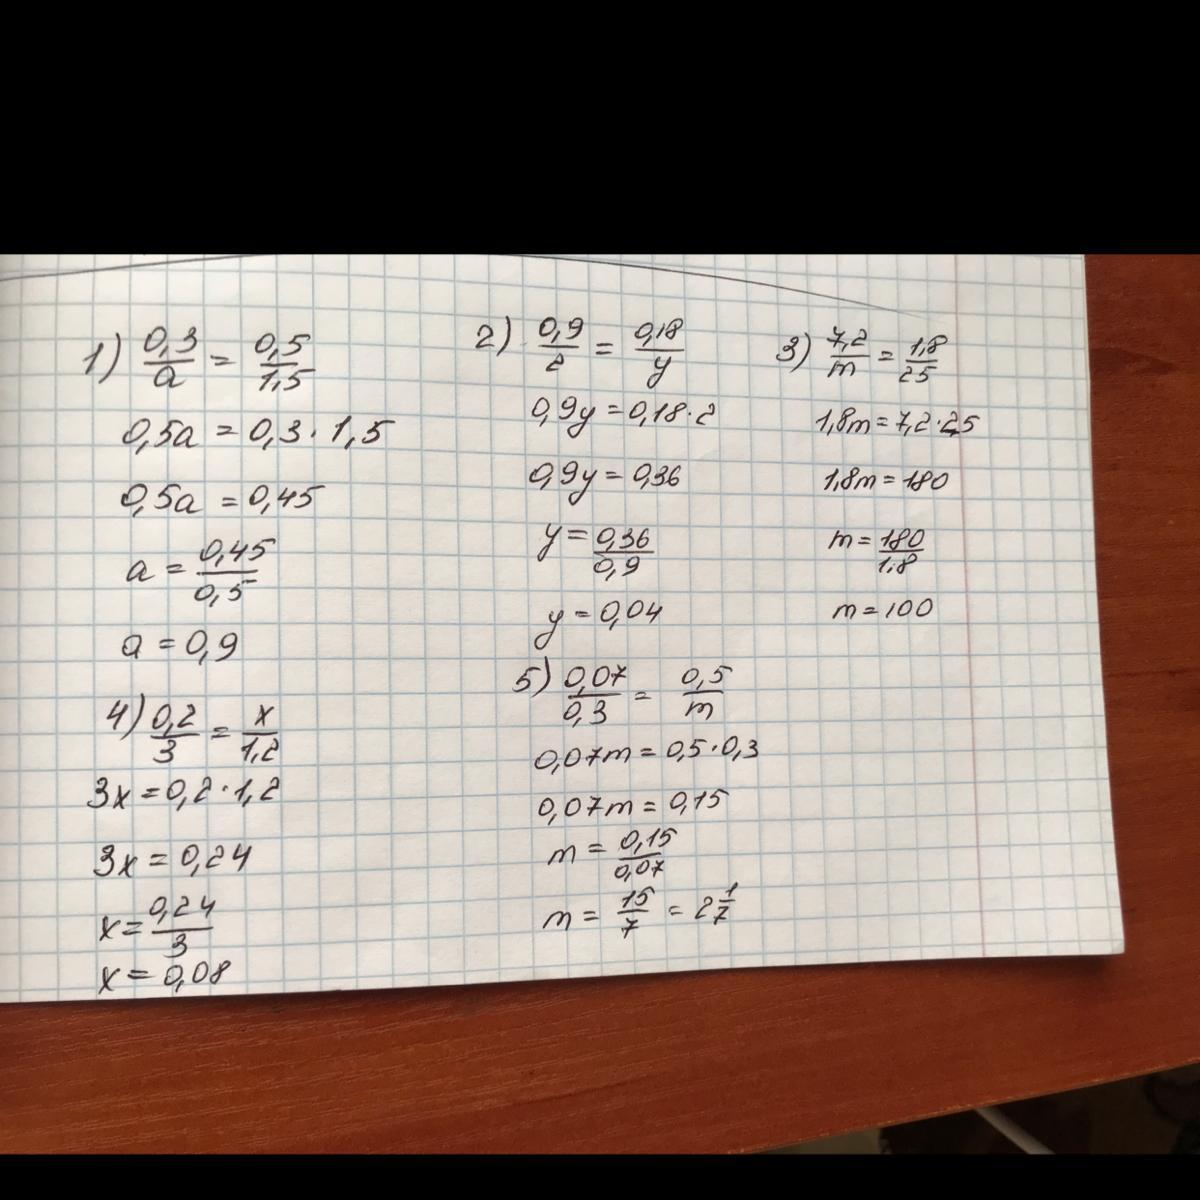 1) 0,3/a = 0,5/1,5
0,5a = 0,3 · 1,5
0,5a = 0,45
a = 0,45/0,5
a = 0,9
2) 0,9/2 = 0,18/y
0,9y = 0,18 · 2
0,9y = 0,36
y = 0,36/0,9
y = 0,04
3) 7,2/m = 1,8/25
1,8m = 7,2 · 25
1,8m = 180
m = 180/1,8
m = 100
4) 0,2/3 = x/1,2
3x = 0,2 · 1,2
3x = 0,24
x = 0,24/3
x = 0,08
5) 0,07/0,3 = 0,5/m
0,07m = 0,5 · 0,3
0,07m = 0,15
m = 0,15/0,07
m = 15/7 = 2 1/7